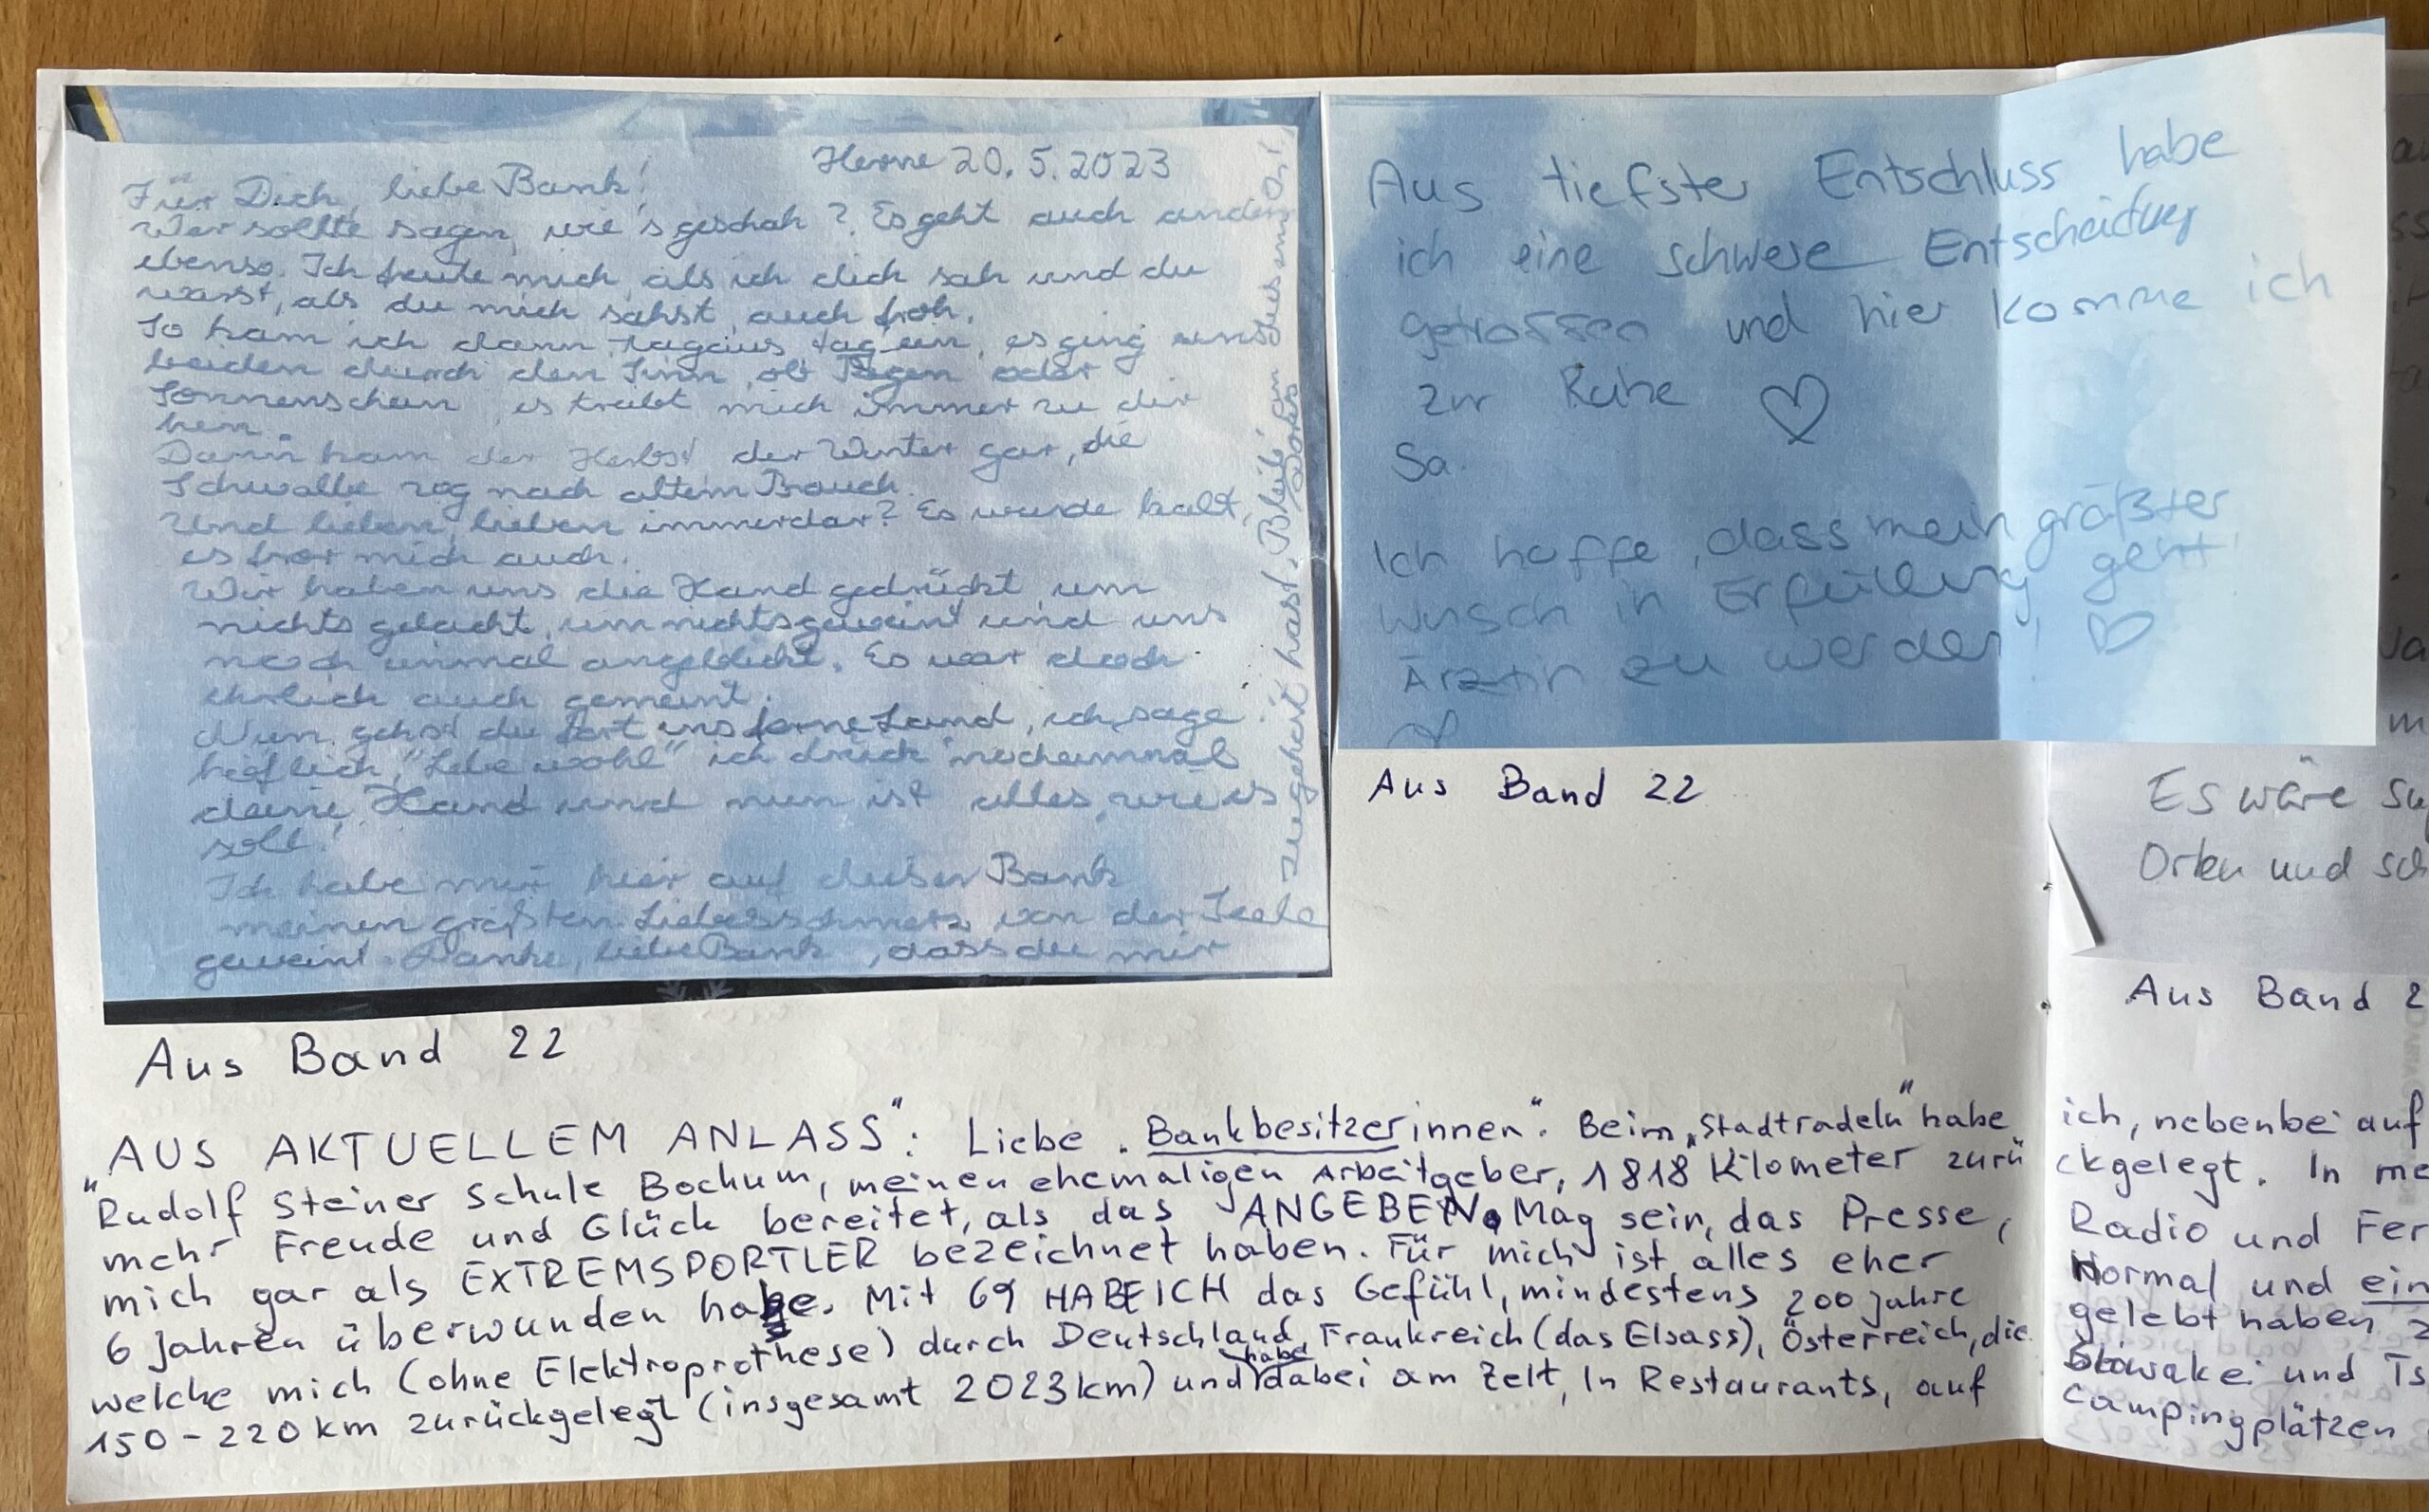 Herne 20.5.2023
Für Dich, liebe Bank!
Wer sollte sagen, wie's geschah? Es geht auch andern
ebenso. Ich freute mich, als ich dich sah und du
warst, als du mich sahst, auch froh.
So kam ich dann tagaus tagein, es ging uns
beiden durch den Sinn, ob Regen oder
Sonnenschein, es treibt mich immer zu dir
hin.
Dann kam der Herbst der Winter gar, die
Schwalbe zog nach altem Brauch.
Und lieben, lieben immerdar? Es wurde kalt,
es fror mich auch.
Wir haben uns die Hand gedrückt, um
nichts gelacht, um nichts geweint und uns
noch einmal angeblickt. Es war doch
ehrlich auch gemeint.
Nun gehst du fort ins ferne Land, ich sage
höflich, "Lebe wohl" ich drück nocheinmal
deine Hand und nun ist alles, wie es
soll!
Ich habe mir hier auf dieser Bank
meinen größten Liebesschmerz von der Seele
geweint. Danke, liebe Bank, dass du mir
zugehört hast. Bleib
Aus Band 22
Aus tiefster Entschluss habe
ich eine schwere Entscheidung
getroffen und hier komme ich
zur Ruhe ♡
Sa.
Ich hoffe, dass mein größter
Wunsch in Erfüllung geht
Ärztin zu werden! ♡
♡
Aus Band 22
Es wäre
Orten und
Aus Band 2
"AUS AKTUELLEM ANLASS": Liebe "Bankbesitzerinnen". Beim "Stadtradeln" habe ich, nebenbei auf
"Rudolf Steiner Schule Bochum, meinen ehemaligen Arbeitgeber, 1818 Kilometer zurü ckgelegt. In
mehr Freude und Glück bereitet, als das ANGEBEN. Mag sein, das Presse, Radio und
mich gar als EXTREMSPORTLER bezeichnet haben. Für mich ist alles eher Normal und
6 Jahren überwunden habe. Mit 69 HABE ICH das Gefühl, mindestens 200 Jahre gelebt haben
welche mich (ohne Elektroprothese) durch Deutschland, Frankreich (das Elsass), Österreich, die Slowakei und
150-220 km zurückgelegt (insgesamt 2023 km) und habe dabei am Zelt, In Restaurants, auf Campingplätzen